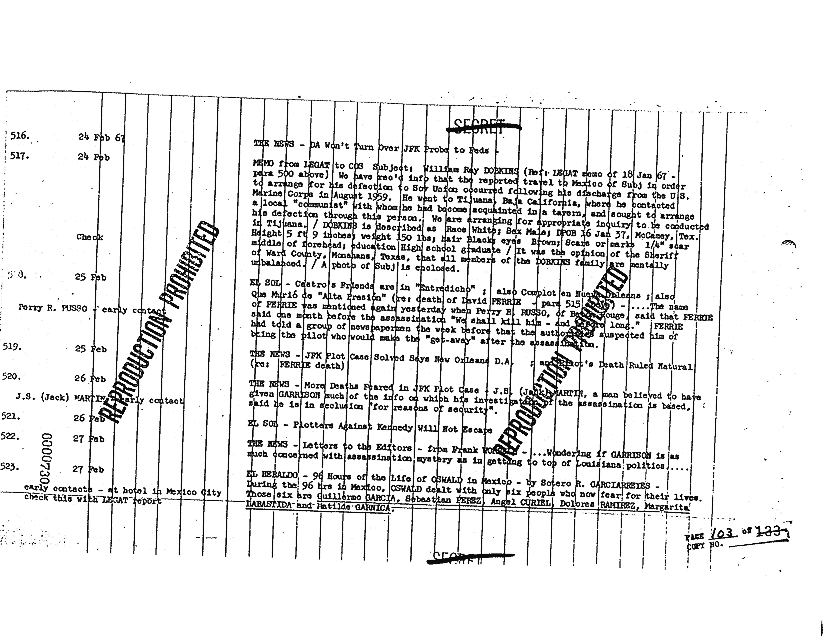 SECRET
516. 24 Feb 67 THE NEWS - DA Won't Turn Over JFK Probe to Feds -
517. 24 Feb MEMO from LEGAT to COS Subject: William Ray DOBKINS (Ref: LEGAT memo of 18 Jan 67 -
para 500 above) We have rec'd info that the reported travel to Mexico of Subj in order
to arrange for his defection to Sov Union occurred following his discharge from the U.S.
Marine Corps in August 1959. He went to Tijuana, Baja California, where he contacted
a local "communist" with whom he had become acquainted in a tavern, and sought to arrange
his defection through this person. We are arranging for appropriate inquiry to be conducted
in Tijuana. / DOBKINS is described as Race White; Sex Male; DPOB 16 Jan 37, McCamey, Tex.
Height 5 ft 9 inches; weight 150 lbs; hair Black; eyes Brown; Scars or marks 1/4" scar
Check middle of forehead; education High school graduate / It was the opinion of the Sheriff
of Ward County, Monahans, Texas, that all members of the DOBKINS family are mentally
unbalanced. / A photo of Subj is enclosed.
25 Feb EL SOL - Castro's Friends are in "Entredicho" ; also Complot en Nueva Orleans ; also
Que Murió de "Alta Presión" (re: death of David FERRIE - para 515) - ....The name
Perry R. RUSSO - early contact of FERRIE was mentioned again yesterday when Perry R. RUSSO, of Baton Rouge, said that FERRIE
said one month before the assassination "We shall kill him - and before long." FERRIE
had told a group of newspapermen the week before that the authorities suspected him of
being the pilot who would make the "get-away" after the assassination.
519. 25 Feb THE NEWS - JFK Plot Case Solved Says New Orleans D.A. ; and Pilot's Death Ruled Natural
(re: FERRIE death)
520. 26 Feb THE NEWS - More Deaths Feared in JFK Plot Case : J.S. (Jack) MARTIN, a man believed to have
J.S. (Jack) MARTIN - early contact given GARRISON much of the info on which his investigation of the assassination is based,
said he is in seclusion "for reasons of security".
521. 26 Feb EL SOL - Plotters Against Kennedy Will Not Escape
522. 27 Feb THE NEWS - Letters to the Editors - from Frank - ...Wondering if GARRISON is as
much concerned with assassination mystery as in getting to top of Louisiana politics.....
523. 27 Feb EL HERALDO - 96 Hours of the Life of OSWALD in Mexico - by Sotero R. GARCIARREYES -
early contacts - at hotel in Mexico City During the 96 hrs in Mexico, OSWALD dealt with only six people who now fear for their lives.
check this with LEGAT report Those six are Guillermo GARCIA, Sebastian PEREZ, Angel CURIEL, Dolores RAMIREZ, Margarita
LABASTIDA and Matilde GARNICA.
REPRODUCTION PROHIBITED
REPRODUCTION PROHIBITED
PAGE 103 OF 133
COPY NO.
SECRET